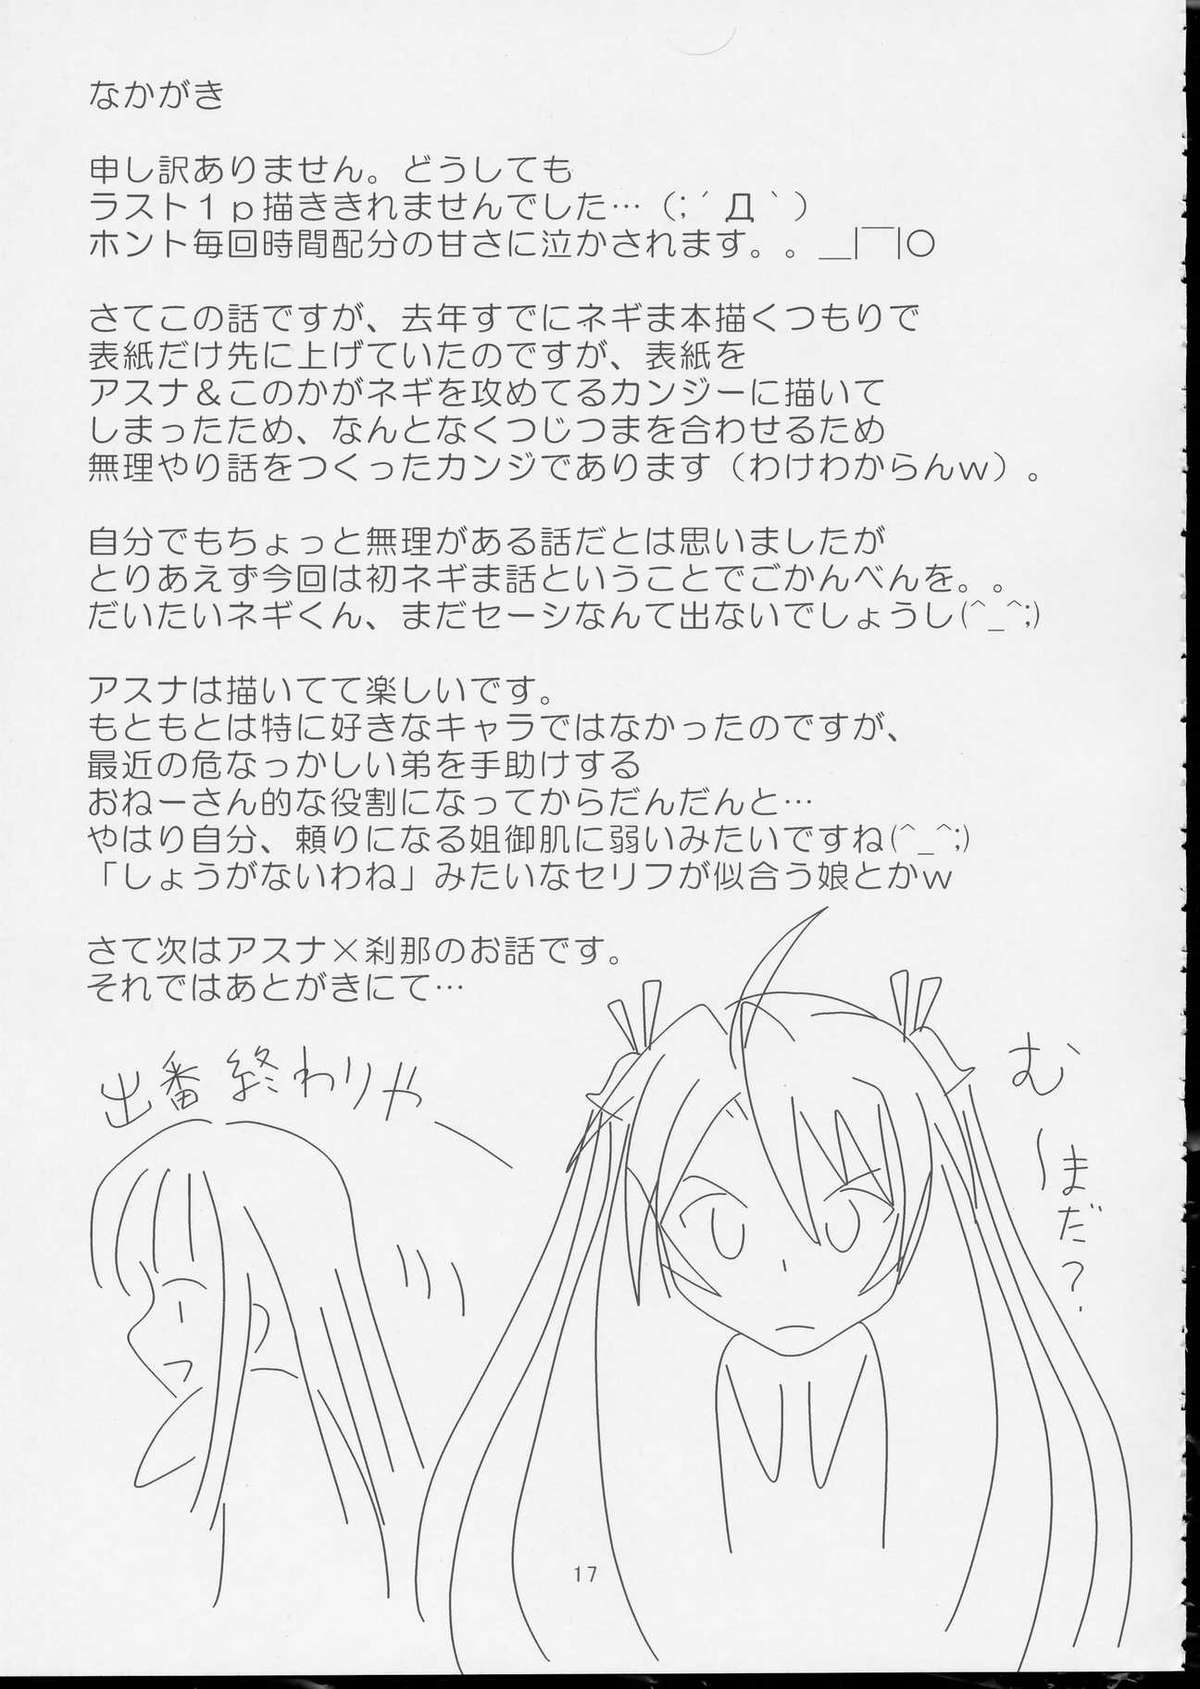 なかがき
申し訳ありません。どうしても
ラスト１ｐ描ききれませんでした…（；´Д｀）
ホント毎回時間配分の甘さに泣かされます。。＿|￣|○
さてこの話ですが、去年すでにネギま本描くつもりで
表紙だけ先に上げていたのですが、表紙を
アスナ＆このかがネギを攻めてるカンジーに描いて
しまったため、なんとなくつじつまを合わせるため
無理やり話をつくったカンジであります（わけわからんｗ）。
自分でもちょっと無理がある話だとは思いましたが
とりあえず今回は初ネギま話ということでごかんべんを。。
だいたいネギくん、まだセーシなんて出ないでしょうし(^_^;)
アスナは描いてて楽しいです。
もともとは特に好きなキャラではなかったのですが、
最近の危なっかしい弟を手助けする
おねーさん的な役割になってからだんだんと…
やはり自分、頼りになる姐御肌に弱いみたいですね(^_^;)
「しょうがないわね」みたいなセリフが似合う娘とかｗ
さて次はアスナ×刹那のお話です。
それではあとがきにて…
出番終わりや〜
む〜
まだ？
17